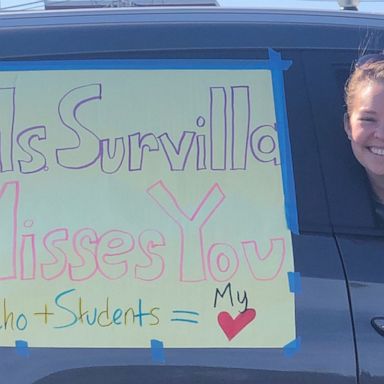 Ms. Survilla
Misses You
+ Students = My ♥